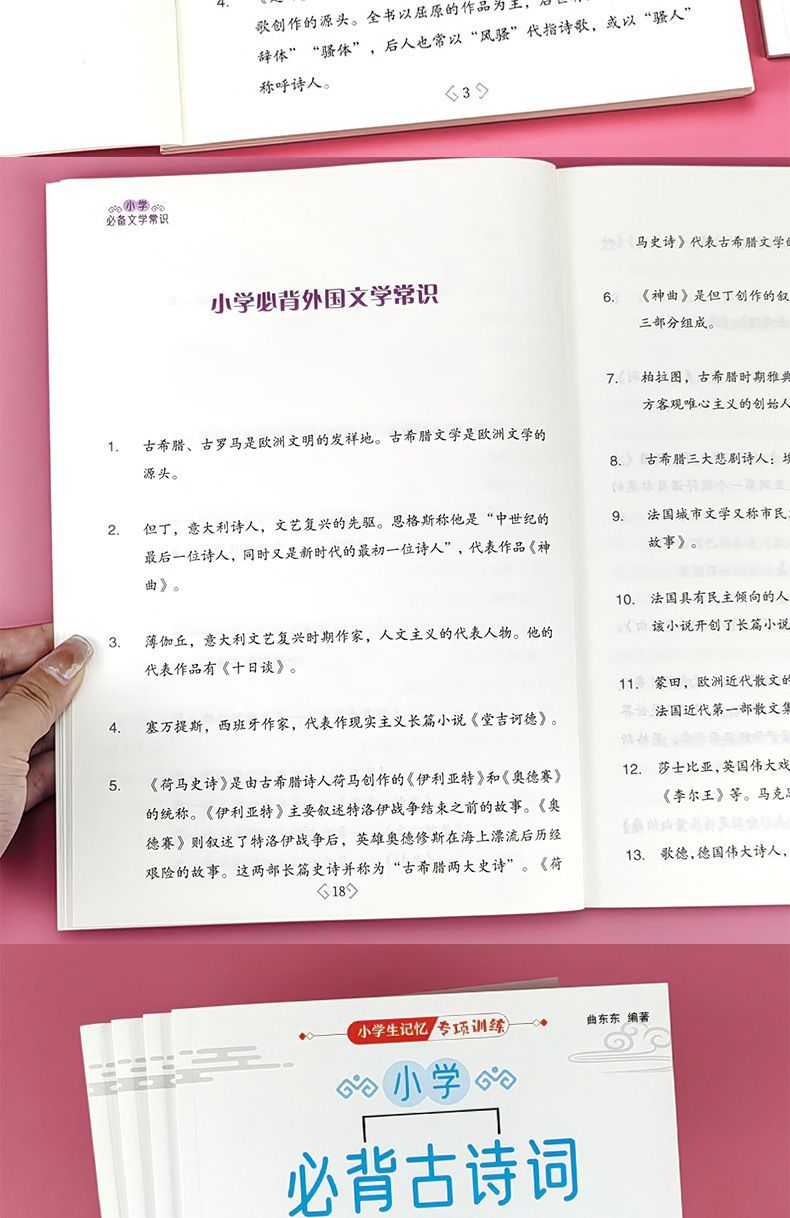 4.
歌创作的源头。全书以屈原的作品为主，后
辞体”“骚体”，后人也常以“风骚”代指诗歌，或以“骚人”
称呼诗人。
3
小学
必备文学常识
小学必背外国文学常识
1. 古希腊、古罗马是欧洲文明的发祥地。古希腊文学是欧洲文学的
源头。
2. 但丁，意大利诗人，文艺复兴的先驱。恩格斯称他是“中世纪的
最后一位诗人，同时又是新时代的最初一位诗人”，代表作品《神
曲》。
3. 薄伽丘，意大利文艺复兴时期作家，人文主义的代表人物。他的
代表作品有《十日谈》。
4. 塞万提斯，西班牙作家，代表作现实主义长篇小说《堂吉诃德》。
5. 《荷马史诗》是由古希腊诗人荷马创作的《伊利亚特》和《奥德赛》
的统称。《伊利亚特》主要叙述特洛伊战争结束之前的故事。《奥
德赛》则叙述了特洛伊战争后，英雄奥德修斯在海上漂流后历经
艰险的故事。这两部长篇史诗并称为“古希腊两大史诗”。《荷
18
马史诗》代表古希腊文学的
6. 《神曲》是但丁创作的叙
三部分组成。
7. 柏拉图，古希腊时期雅典
方客观唯心主义的创始人
8. 古希腊三大悲剧诗人：埃
9. 法国城市文学又称市民
故事》。
10. 法国具有民主倾向的人
该小说开创了长篇小说
11. 蒙田，欧洲近代散文的
法国近代第一部散文集
12. 莎士比亚，英国伟大戏
《李尔王》等。马克思
13. 歌德，德国伟大诗人，
小学生记忆 专项训练
曲东东 编著
小学
必背古诗词